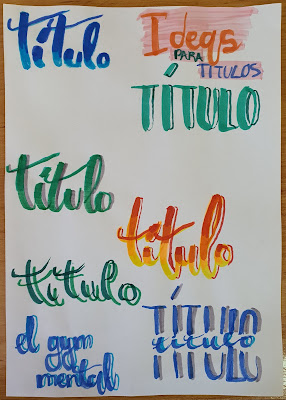 título
Ideas
PARA
TITULOS
TÍTULO
título
título
título
TÍTULO
título
el gym
mental